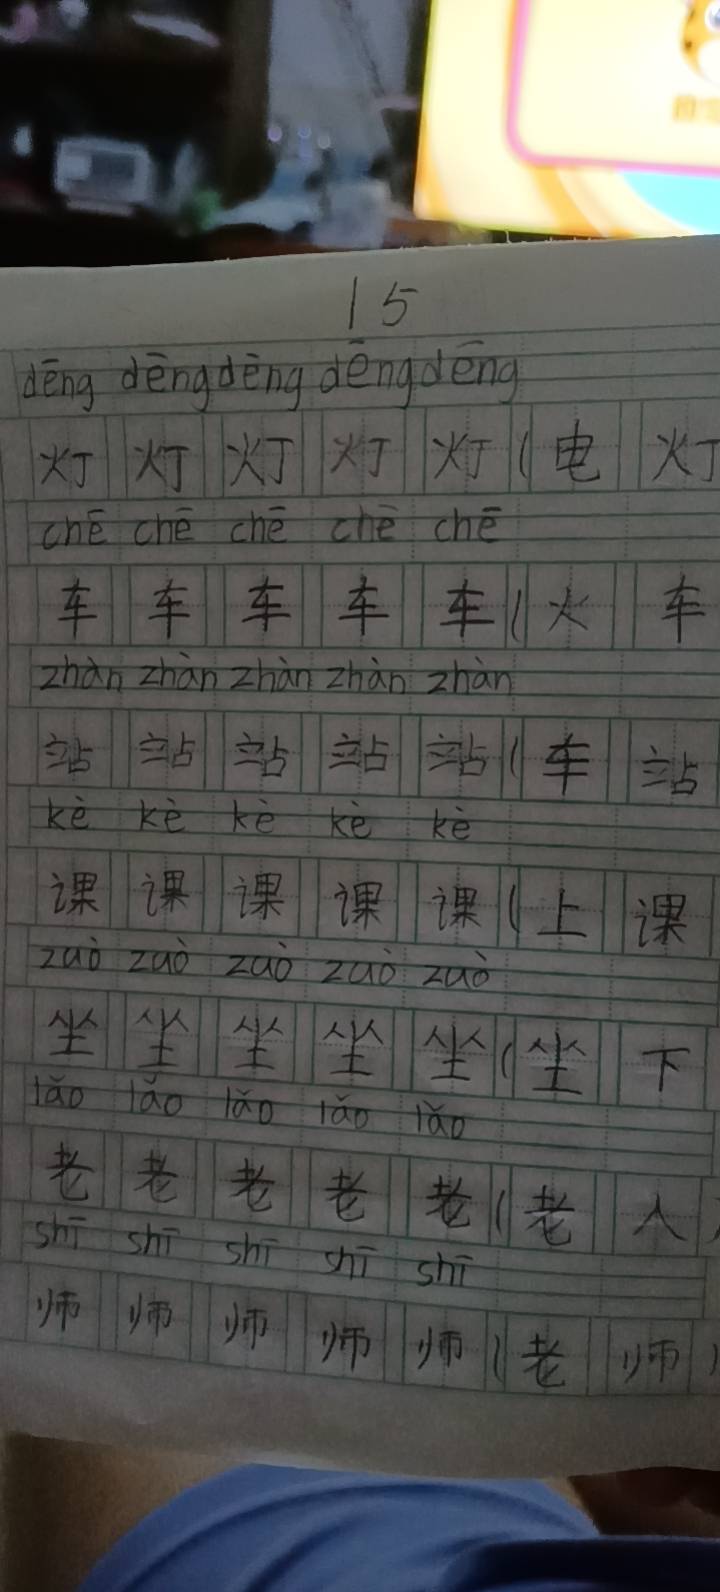 15
dēng dēng dēng dēng dēng
灯 灯 灯 灯 灯 ( 电 灯
chē chē chē chē chē
车 车 车 车 车 ( 火 车
zhàn zhàn zhàn zhàn zhàn
站 站 站 站 站 ( 车 站
kè kè kè kè kè
课 课 课 课 课 ( 上 课
zuò zuò zuò zuò zuò
坐 坐 坐 坐 坐 ( 坐 下
lǎo lǎo lǎo lǎo lǎo
老 老 老 老 老 ( 老 人 )
shī shī shī shī shī
师 师 师 师 师 ( 老 师 )